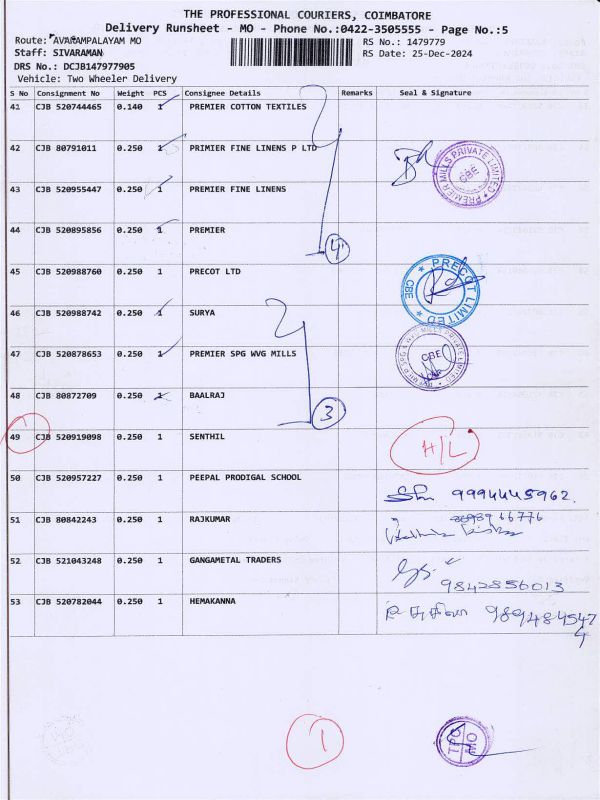 THE PROFESSIONAL COURIERS, COIMBATORE
Delivery Runsheet - MO - Phone No.:0422-3505555 - Page No.:5
Route: AVARAMPALAYAM MO RS No.: 1479779
Staff: SIVARAMAN RS Date: 25-Dec-2024
DRS No.: DCJB147977905
Vehicle: Two Wheeler Delivery
S No Consignment No Weight PCS Consignee Details Remarks Seal & Signature
41 CJB 520744465 0.140 1 PREMIER COTTON TEXTILES
42 CJB 80791011 0.250 1 PRIMIER FINE LINENS P LTD
PREMIER MILLS PRIVATE LIMITED CBE
43 CJB 520955447 0.250 1 PREMIER FINE LINENS
44 CJB 520895856 0.250 1 PREMIER
4
45 CJB 520988760 0.250 1 PRECOT LTD
PRECOT LIMITED CBE
46 CJB 520988742 0.250 1 SURYA
47 CJB 520878653 0.250 1 PREMIER SPG WVG MILLS
CBE
48 CJB 80872709 0.250 1 BAALRAJ
3
49 CJB 520919098 0.250 1 SENTHIL H/L
50 CJB 520957227 0.250 1 PEEPAL PRODIGAL SCHOOL
9994445962.
51 CJB 80842243 0.250 1 RAJKUMAR
52 CJB 521043248 0.250 1 GANGAMETAL TRADERS
9842856013
53 CJB 520782044 0.250 1 HEMAKANNA
989484547
4
1
TPC MO